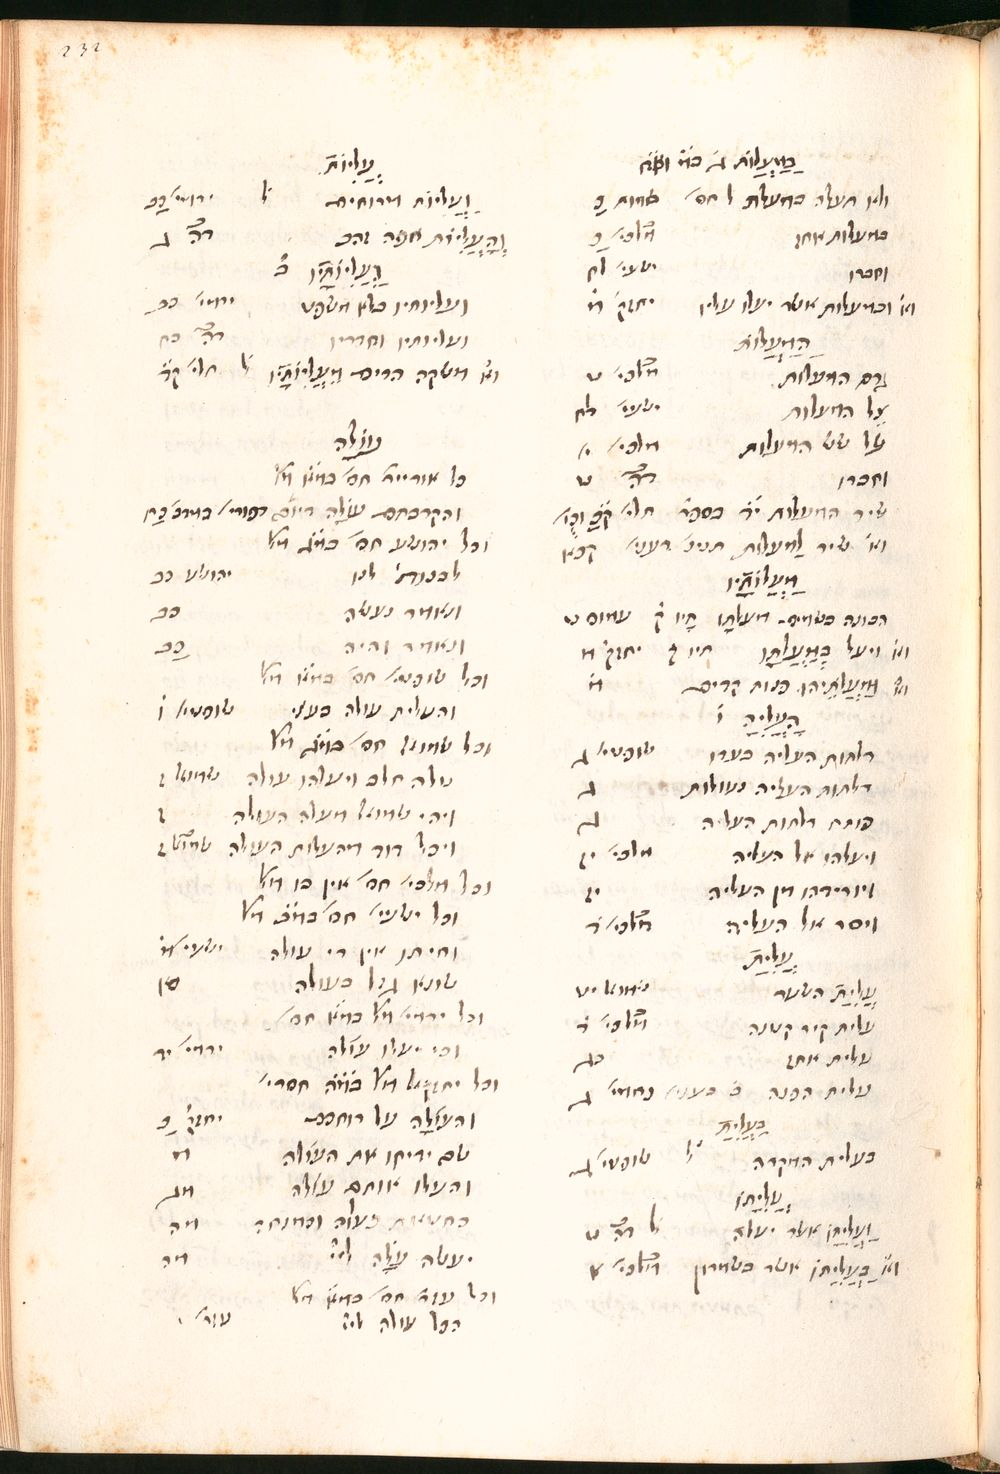 232
בְּמַעֲלוֹת
ולא תעלה במעלת ל חס׳ שמות כ
במעלות אחז מלכי׳ כ
וחברו ישעי׳ לח
וא׳ ובמעלות אשר יעלו עליו יחזק׳ מ
הַמַּעֲלוֹת
גרם המעלות מלכי׳ ט
אל המעלות ישעי׳ לח
על שש המעלות מלכי׳ י
וחברו דה׳ ט
שיר המעלות בספר תלי׳
וא׳ שיר למעלות קכא
מַעֲלוֹתָיו
הבונה בשמים מעלתו עמוס ט
וא׳ ויעל בְּמַעֲלֹתָו יחזק׳ מ
וא׳ וּמַעֲלֹתֵיהוּ פנות קדים מ
הָעֲלִיָּה ו
דלתות העליה בעדו שופטי׳ ג
דלתות העליה נעולות ג
פותח דלתות העליה ג
ויעלהו אל העליה מלכי׳ יז
ויורידהו מן העליה יז
ויסר אל העליה מלכי׳ ד
עֲלִיַּת
עֲלִיַּת השער שמואל יט
עלית קיר קטנה מלכי׳ ד
עלית אחז כג
עלית הפנה נחמי׳ ג
בַּעֲלִיַּת
בעלית המקרה ל שופטי׳ ג
עֲלִיָּתוֹ
וַעֲלִיָּתוֹ אשר יעלה ל דה׳ ט
וא׳ בַּעֲלִיָּתוֹ אשר בשמרון מלכי׳ א
עֲלִיּוֹת
וַעֲלִיּוֹת מרוחים ל ירמי׳ כב
וְהָעֲלִיּוֹת חפה זהב דה׳ ג
וַעֲלִיּוֹתָיו ב
ועליותיו בלא משפט ירמי׳ כב
ועליותיו וחדריו דה׳ כח
וא׳ משקה הרים מֵעֲלִיּוֹתָיו ל תלי׳ קד
עוֹלָה
כל אורייתא חס׳
והקרבתם עוֹלָה במדבר כח
וכל יהושע חס׳
לבנות לנו יהושע כב
ונאמר נעשה כב
ונאמר והיה כב
וכל שופטי׳ חס׳
והעלית עולה שופטי׳ ו
וכל שמואל חס׳
טלה חלב ויעלהו עולה שמואל ז
ויהי שמואל מעלה העולה ז
ויכל דוד מהעלות העולה שמואל ו
וכל מלכי׳ חס׳
וכל ישעי׳ חס׳
וחיתו אין די עולה ישעי׳ מ
שונא גזל בעולה סא
וכל ירמי׳ חס׳
וכי יעלו עולה ירמי׳ יד
וכל יחזקאל חסרי׳
והעולה על רוחכם יחזק׳ כ
שם ידיחו את העולה מ
והעלו אותם עולה מג
בחטאת בעלה וכמנחה מה
יעשה עולה ליי׳
וכל עזרא חס׳
הכל עולה ליי׳ עזר׳